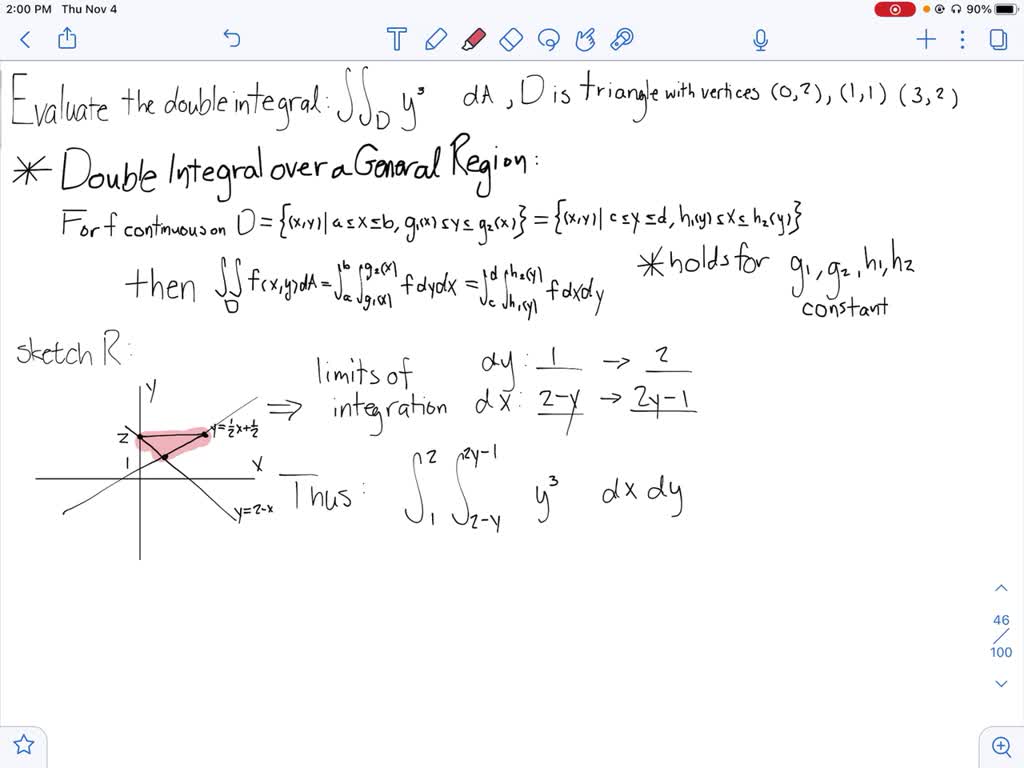 2:00 PM Thu Nov 4
90%
T
Evaluate the double integral: ∬_D y³ dA, D is triangle with vertices (0,2), (1,1) (3,2)
* Double Integral over a General Region:
For f continuous on D = {(x,y) | a ≤ x ≤ b, g₁(x) ≤ y ≤ g₂(x)} = {(x,y) | c ≤ y ≤ d, h₁(y) ≤ x ≤ h₂(y)}
then ∬_D f(x,y) dA = ∫_a^b ∫_{g₁(x)}^{g₂(x)} f dy dx = ∫_c^d ∫_{h₁(y)}^{h₂(y)} f dx dy
* holds for g₁, g₂, h₁, h₂
constant
sketch R:
y
2
1
x
y = ½x + ½
y = 2-x
⇒ limits of integration
dy: 1 → 2
dx: 2-y → 2y-1
Thus: ∫_1^2 ∫_{2-y}^{2y-1} y³ dx dy
46
/
100